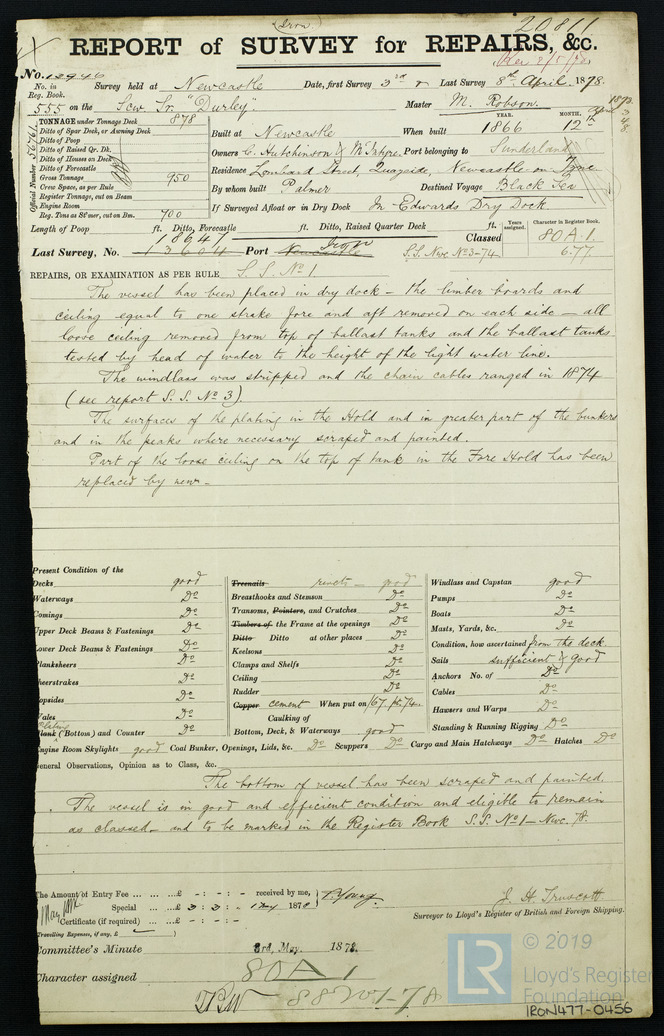 (Iron)
20811
REPORT of SURVEY for REPAIRS, &c.
No. 12946
Survey held at Newcastle Date, first Survey 3rd & Last Survey 8th April 1878.
No. in Reg. Book.
555 on the Scw Sr. "Durley" Master M. Robson
1878 April 3 4 8
Official Number 56761
TONNAGE under Tonnage Deck 878
Ditto of Spar Deck, or Awning Deck
Ditto of Poop
Ditto of Raised Qr. Dk.
Ditto of Houses on Deck
Ditto of Forecastle
Gross Tonnage 950
Crew Space, as per Rule
Register Tonnage, cut on Beam
Engine Room
Reg. Tons as St'mer, cut on Bm. 700
YEAR. MONTH.
Built at Newcastle When built 1866 12th
Owners C. Hutchinson & McIntyre Port belonging to Sunderland
Residence Lombard Street, Quayside, Newcastle on Tyne
By whom built Palmer Destined Voyage Black Sea
If Surveyed Afloat or in Dry Dock In Edwards Dry Dock.
Length of Poop ft. Ditto, Forecastle ft. Ditto, Raised Quarter Deck ft.
Years assigned. Character in Register Book.
Classed 80A.1.
6.77
1864 Iron
Last Survey, No. 13604 Port Newcastle S.S. Nwc No3-74
REPAIRS, OR EXAMINATION AS PER RULE S.S. No 1
The vessel has been placed in dry dock - the limber boards and
ceiling equal to one strake fore and aft removed on each side - all
loose ceiling removed from top of ballast tanks and the ballast tanks
tested by head of water to the height of the light water line.
The windlass was stripped and the chain cables ranged in 1874
(see report S.S. No 3).
The surfaces of the plating in the Hold and in greater part of the bunkers
and in the peaks where necessary scraped and painted.
Part of the loose ceiling on the top of tank in the Fore Hold has been
replaced by new -
Present Condition of the
Decks good
Waterways Do
Comings Do
Upper Deck Beams & Fastenings Do
Lower Deck Beams & Fastenings Do
Planksheers Do
Sheerstrakes Do
Topsides Do
Wales Do
Plating
Plank (Bottom) and Counter Do
Treenails rivets - good
Breasthooks and Stemson Do
Transoms, Pointers, and Crutches Do
Timbers of the Frame at the openings Do
Ditto Ditto at other places Do
Keelsons Do
Clamps and Shelfs Do
Ceiling Do
Rudder Do
Copper cement When put on
Caulking of
Bottom, Deck, & Waterways good
Windlass and Capstan good
Pumps Do
Boats Do
Masts, Yards, &c. Do
Condition, how ascertained from the deck.
Sails sufficient & good
Anchors No. of Do
Cables Do
Hawsers and Warps Do
Standing & Running Rigging Do
Engine Room Skylights good Coal Bunker, Openings, Lids, &c. Do Scuppers Do Cargo and Main Hatchways Do Hatches Do
General Observations, Opinion as to Class, &c.
The bottom of vessel has been scraped and painted.
The vessel is in good and efficient condition and eligible to remain
as classed - and to be marked in the Register Book S.S. No 1 - Nwc. 78.
The Amount of Entry Fee ... ... ...£ - : - : - received by me,
Special ... ...£ 3 : 3 : - 1 May 1878
Certificate (if required) ...£ - : - : -
(Travelling Expenses, if any, £ )
J. H. Truscott
Surveyor to Lloyd's Register of British and Foreign Shipping.
Committee's Minute 3rd. May. 1878.
Character assigned 80A1
© 2019
LR
Lloyd's Register
Foundation
IRON477-0456